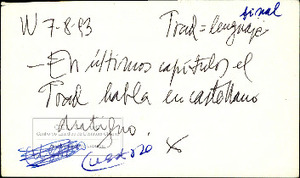 final
W 7-8-93 Trad = lenguaje
- En últimos capítulos el
Trad habla en castellano
antiguo.
Cuaderno X